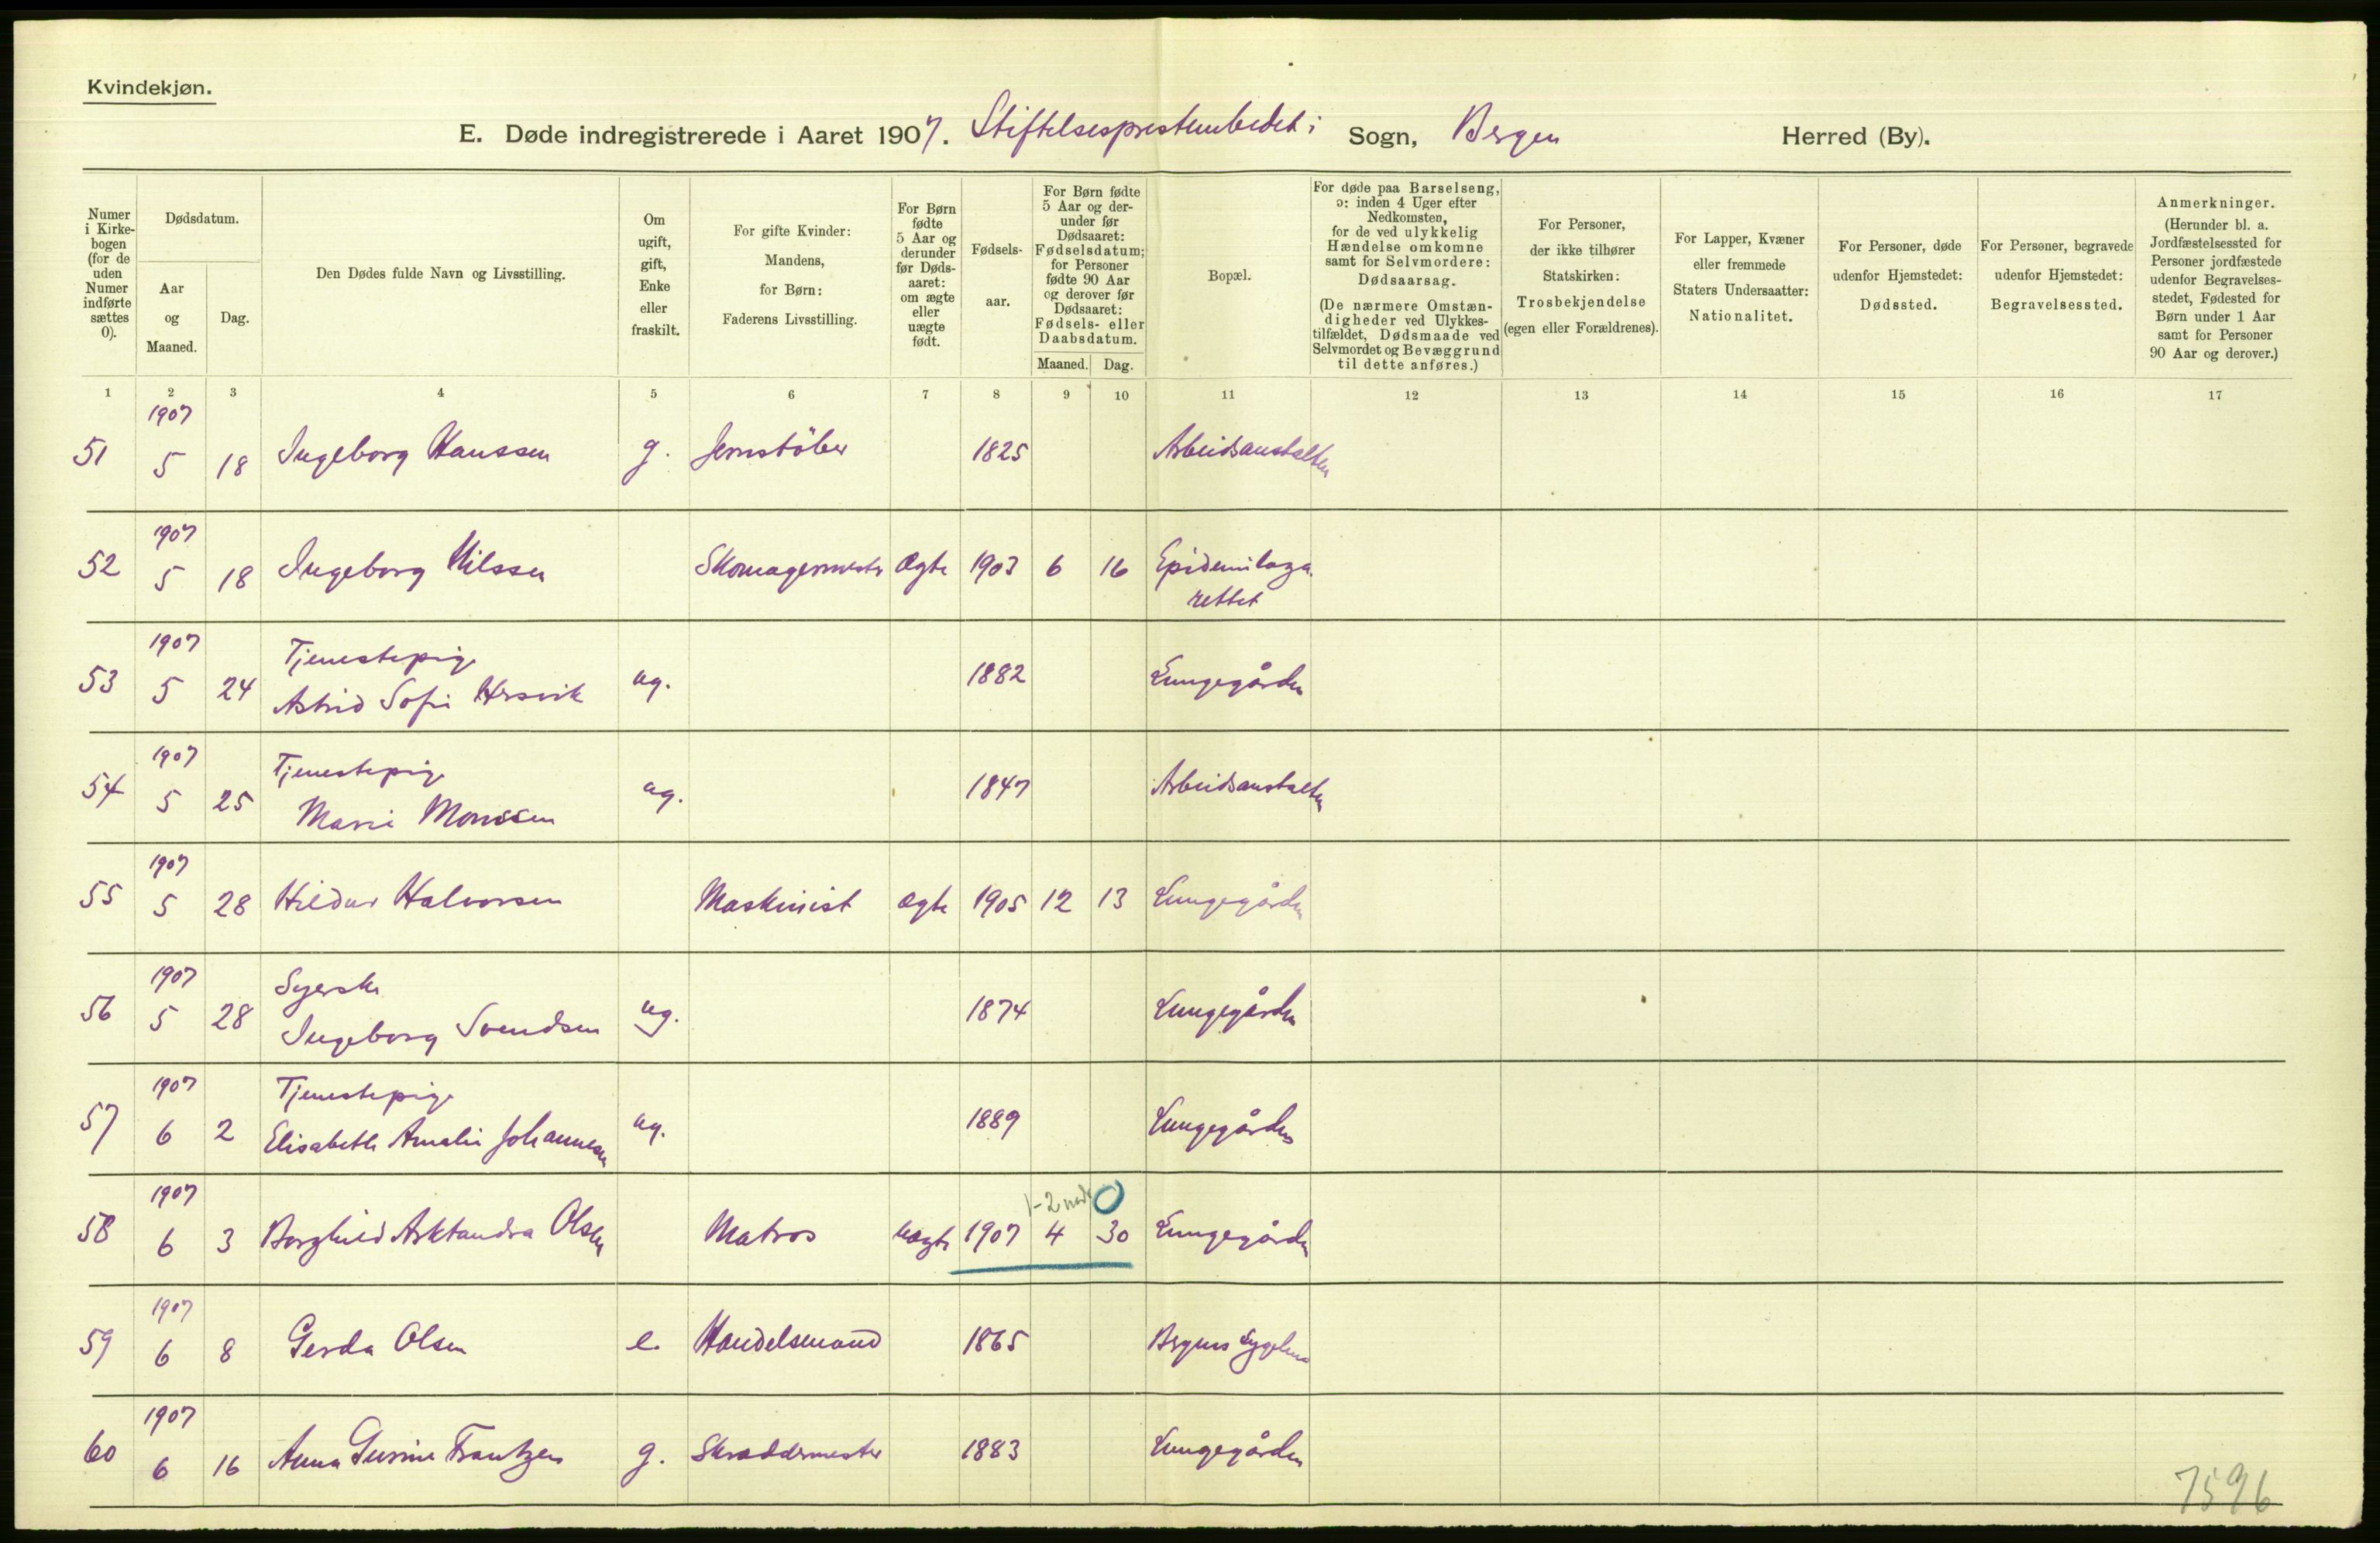 Kvindekjøn.
E. Døde indregistrerede i Aaret 1907. Stiftelsesprestembedet i Sogn, Bergen Herred (By).
Numer i Kirkebogen (for de uden Numer indførte sættes 0).
Dødsdatum.
Aar og Maaned.
Dag.
Den Dødes fulde Navn og Livsstilling.
Om ugift, gift, Enke eller fraskilt.
For gifte Kvinder: Mandens, for Børn: Faderens Livsstilling.
For Børn fødte 5 Aar og derunder før Dødsaaret: om ægte eller uægte født.
Fødselsaar.
For Børn fødte 5 Aar og derunder før Dødsaaret: Fødselsdatum; for Personer fødte 90 Aar og derover før Dødsaaret: Fødsels- eller Daabsdatum.
Maaned. Dag.
Bopæl.
For døde paa Barselseng, ɔ: inden 4 Uger efter Nedkomsten, for de ved ulykkelig Hændelse omkomne samt for Selvmordere: Dødsaarsag.
(De nærmere Omstændigheder ved Ulykkestilfældet, Dødsmaade ved Selvmordet og Bevæggrund til dette anføres.)
For Personer, der ikke tilhører Statskirken: Trosbekjendelse (egen eller Forældrenes).
For Lapper, Kvæner eller fremmede Staters Undersaatter: Nationalitet.
For Personer, døde udenfor Hjemstedet: Dødssted.
For Personer, begravede udenfor Hjemstedet: Begravelsessted.
Anmerkninger. (Herunder bl. a. Jordfæstelsessted for Personer jordfæstede udenfor Begravelsesstedet, Fødested for Børn under 1 Aar samt for Personer 90 Aar og derover.)
1 2 3 4 5 6 7 8 9 10 11 12 13 14 15 16 17
1907
51 5 18 Ingeborg Hanssen g. Jernstöber 1825 Arbeidsanstalten
1907
52 5 18 Ingeborg Nilssen Skomagermester Ægte 1903 6 16 Epidemilaza
rettet
1907 Tjenestepige
53 5 24 Astrid Sofie Hersvik ug. 1882 Lungegården
1907 Tjenestepige
54 5 25 Marie Monssen ug. 1847 Arbeidsanstalten
1907
55 5 28 Hildur Halvorsen Maskinist Ægte 1905 12 13 Lungegården
1907 Syerske
56 5 28 Ingeborg Svendsen ug. 1874 Lungegården
1907 Tjenestepige
57 6 2 Elisabeth Amalie Johannesen ug. 1889 Lungegården
1907 1-2 0
58 6 3 Borghild Olsen Matros Uægte 1907 4 30 Lungegården
1907
59 6 8 Gerda Olsen e. Handelsmand 1865 Bergens Sygehus
1907
60 6 16 Anna Gurine Frantzen g. Skræddermester 1883 Lungegården
7596